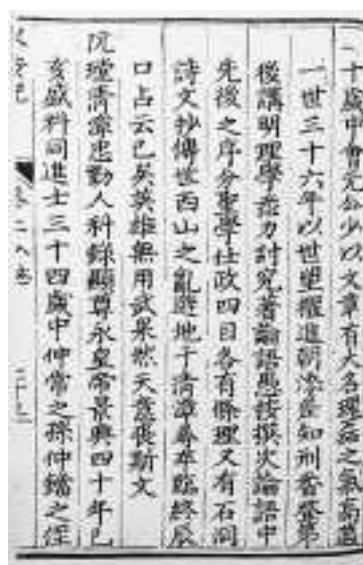 二十歲中會元公少以文章有大名理盛之氣高蓋
一世三十六年以世望擢進朝添差知刑番癸第
後講明理學盡力討究著論語愚按撰次論語中
先後之序分聖學仕政四目各有條理又有石洞
詩文抄傳世西山之亂避地于清潭尋卒臨終辰
口占云已矣英雄無用武果然天意喪斯文
阮瑝清潭忠勤人科錄顯尊永皇帝景興四十年己
亥盛科同進士三十四歲中仲常之孫仲鐺之侄